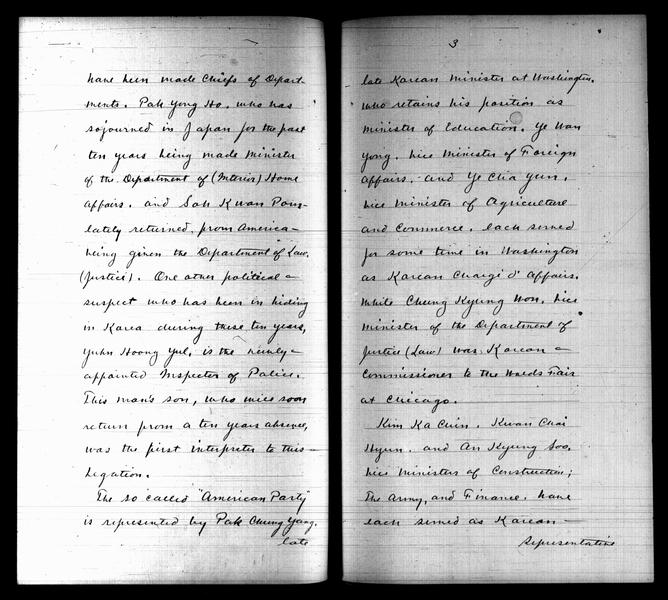 have been made Chiefs of Depart-
ments. Pak Yong Ho. who has
sojourned in Japan for the past
ten years being made Minister
of the Department of (Interior) Home
Affairs. and Soh Kwan Pom-
lately returned from America-
being given the Department of Law.
(Justice). One other political-
suspect who has been in hiding
in Korea during these ten years,
Yuhn Hoong Yul, is the newly-
appointed Inspector of Police.
This man's son, who will soon
return from a ten years absence,
was the first interpreter to this-
Legation.
The so called "American Party"
is represented by Pak Chung Yang.
late
3
late Korean Minister at Washington.
who retains his position as
Minister of Education. Ye Wan
Yong. Vice Minister of Foreign
Affairs. and Ye Cha Yun.
Vice Minister of Agriculture
and Commerce. each served
for some time in Washington
as Korean Chargi d' Affairs.
While Chung Kyung Won. Vice
Minister of the Department of
Justice (Law) was Korean-
Commissioner to the Worlds Fair
at Chicago.
Kim Ka Chin. Kwan Chai
Hyun. and An Kyung Soo.
Vice Ministers of Construction;
The Army, and Finance. have
each served as Korean-
Representative